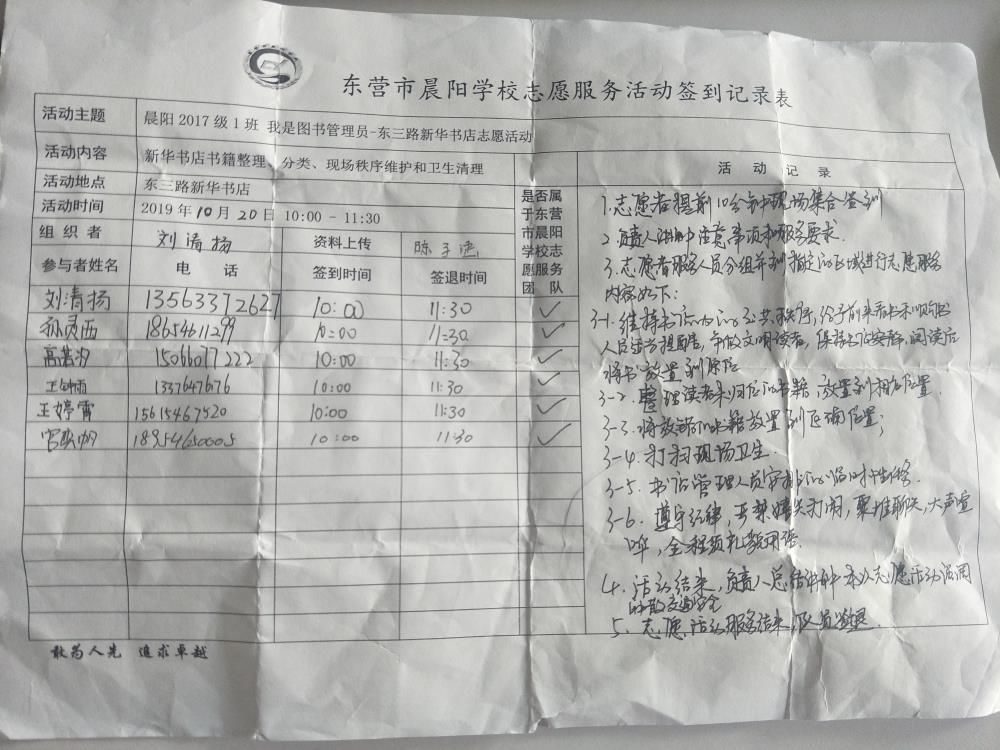 东营市晨阳学校志愿服务活动签到记录表
活动主题 晨阳 2017 级 1 班 我是图书管理员-东三路新华书店志愿活动
活动内容 新华书店书籍整理、分类、现场秩序维护和卫生清理
活动地点 东三路新华书店
活动时间 2019 年 10 月 20 日 10:00 - 11:30
组织者 刘清扬 资料上传 陈子
参与者姓名 电 话 签到时间 签退时间
是否属
于东营
市晨阳
学校志
愿服务
团 队
刘清扬 13563372627 10:00 11:30 ✓
孙灵西 18654611299 10:00 11:30 ✓
高 15066077222 10:00 11:30 ✓
王 1337647676 10:00 11:30 ✓
王婷霄 15615467520 10:00 11:30 ✓
宫 18954650005 10:00 11:30 ✓
活 动 记 录
1.志愿者提前10分钟现场集合签到
2.负责人讲解注意事项和服务要求.
3.志愿者服务人员分组并到指定的区域进行志愿服务
内容如下:
3-1.维持书店内的公共秩序,给予前来看书和购书
人员适当提醒,争做文明读者,保持书店安静,阅读后
将书放置到原位
3-2.整理读者未归位的书籍,放置到相应位置
3-3.将放错的书籍放置到正确位置;
3-4.打扫现场卫生.
3-5.书店管理人员安排的临时性任务.
3-6.遵守纪律,严禁嬉笑打闹,聚堆聊天,大声喧
哗,全程须礼貌用语.
4.活动结束,负责人总结讲解本次志愿活动
解散交通安全
5.志愿活动服务结束,队员签退.
敢为人先 追求卓越